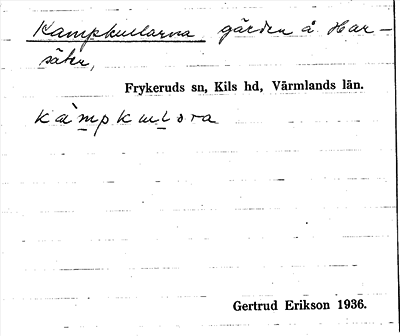 Kampkullarna gärden å Har-
säter,
Frykeruds sn, Kils hd, Värmlands län.
kàmpkulora
Gertrud Erikson 1936.